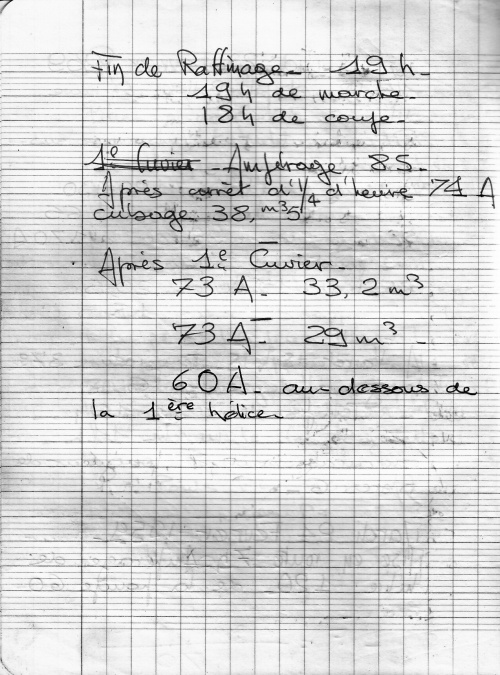 Fin de Raffinage - 19 h -
194 de marche -
184 de coupe -
1e Cuvier - Ampérage 85 -
Après arrêt d'1/4 d'heure 74 A
cubage 38, m³5
Après 1e Cuvier -
73 A - 33,2 m³
73 A - 29 m³ -
60 A - au-dessous de
la 1ère hélice